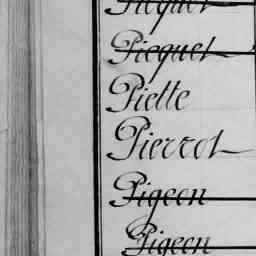 Picquet
Picquet
Piette
Pierrot
Pigeon
Pigeon